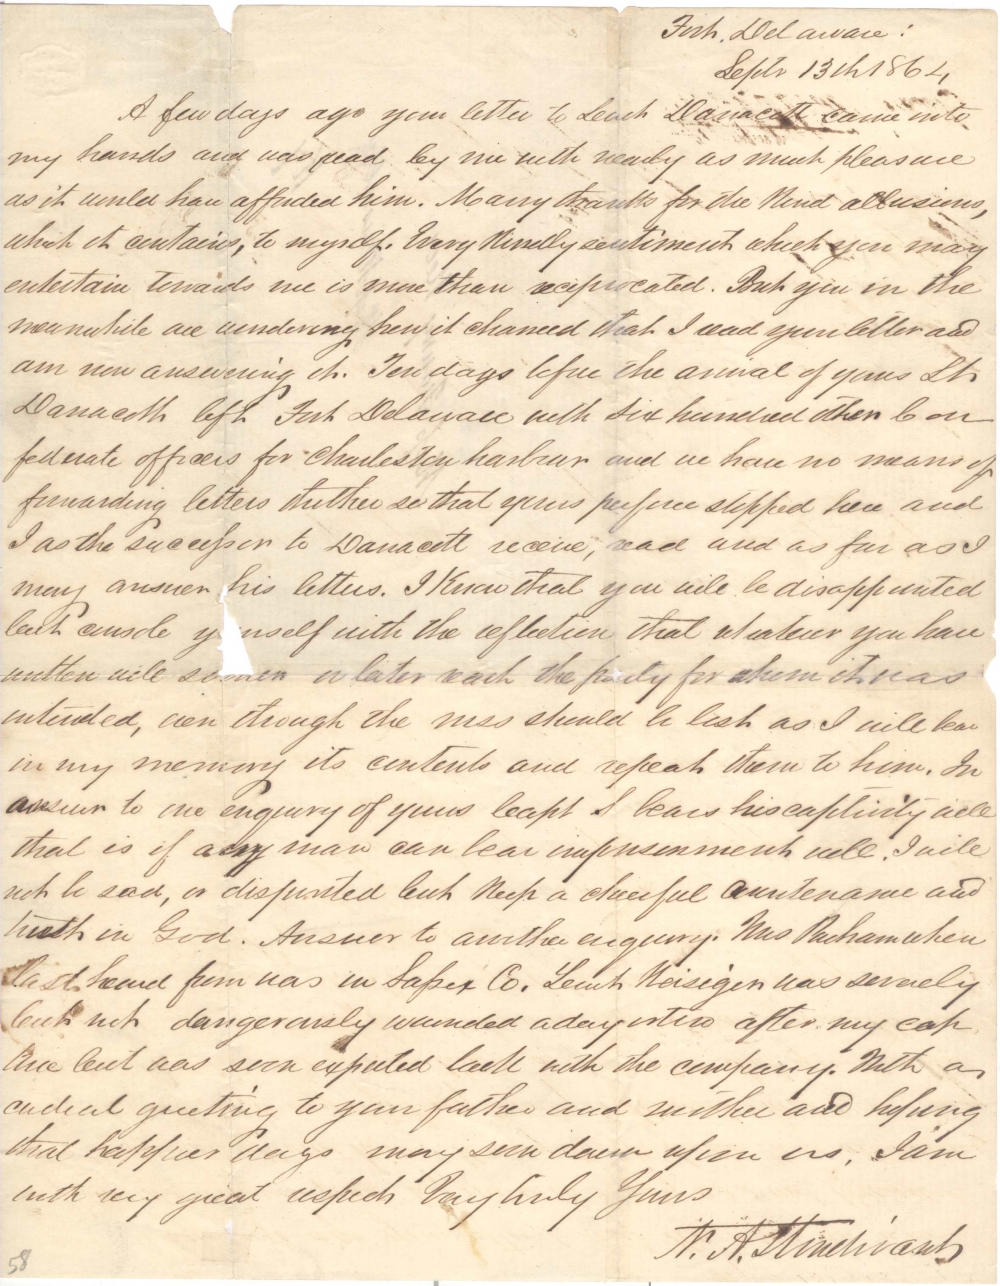 Fort. Delaware:
Septr 13th 1864,
A few days ago your letter to Leut Danacott came into
my hands and was read by me with nearly as much pleasure
as it would have afforded him. Many thanks for the kind allusions,
which it contains, to myself. Every kindly sentiment which you may
entertain towards me is more than reciprocated. But you in the
meanwhile are wondering how it chanced that I read your letter and
am now answering it. Ten days before the arrival of yours Lt
Danacott left Fort Delaware with six hundred other Con
federate officers for Charleston harbour and we have no means of
forwarding letters thither so that yours perforce stopped here and
I as the successor to Danacott receive, read and as far as I
may answer his letters. I know that you will be disappointed
but console yourself with the reflection that whatever you have
written will sooner or later reach the party for whom it was
intended, even though the mss should be lost as I will bear
in my memory its contents and repeat them to him. In
answer to one enquiry of yours Capt S bears his captivity well
that is if any man can bear imprisonment well. I will
not be sad, or dispirited but keep a cheerful countenance and
truth in God. Answer to another enquiry. Mrs Parham when
last heard from was in Sussex Co. Leut Neisiger was severely
but not dangerously wounded a day or two after my cap
ture but was soon expected back with the company. With a
cordial greeting to your father and mother and hoping
that happier days may soon dawn upon us, I am
with very great respect Very truly Yours
N. A. Sturdivant
58